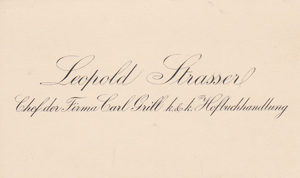 Leopold Strasser
Chef der Firma Carl Grill k. & k. Hofbuchhandlung